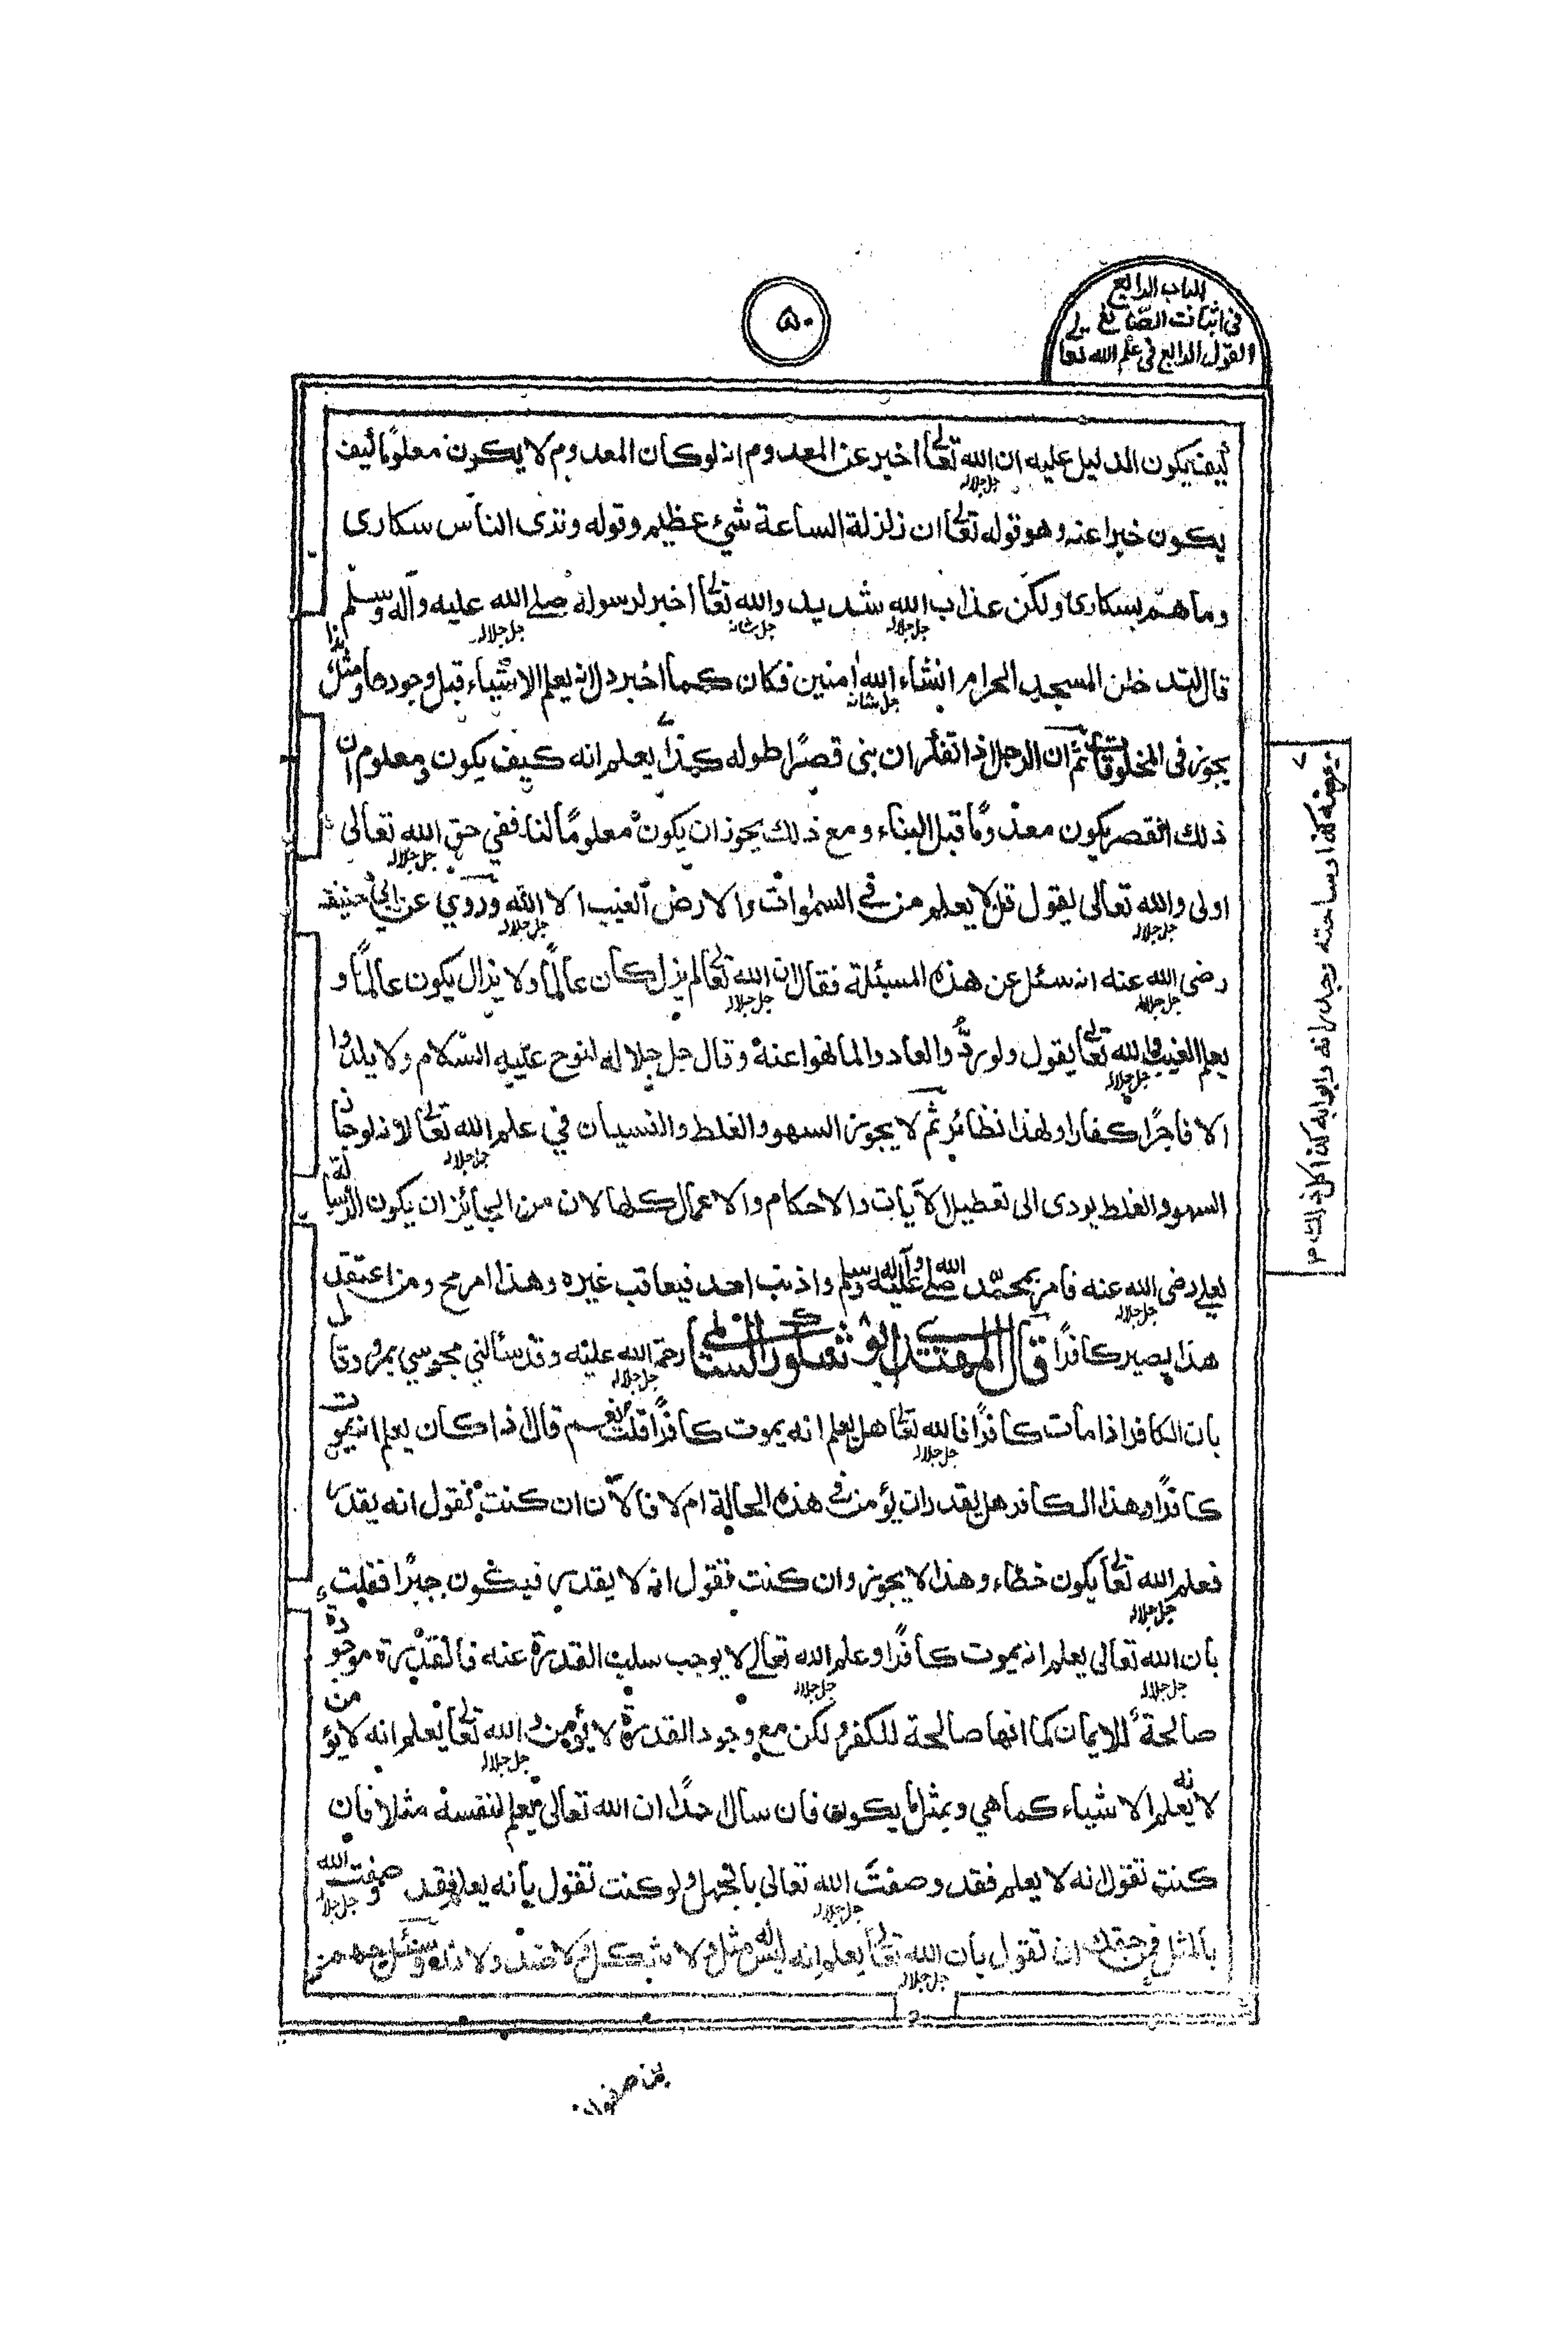 الباب الرابع
في اثبات الصانع
القول الرابع في علم الله تعا
۵۰
كيف يكون الدليل عليه ان الله تعالى اخبر عن المعدوم انه لو كان المعدوم لا يكون معلومًا كيف
جل جلاله
يكون خبرا عنه وهو قوله تعالى ان زلزلة الساعة شيء عظيم وقوله وترى الناس سكارى
وما هم بسكارى ولكن عذاب الله شديد والله تعالى اخبر لرسوله صلى الله عليه وآله وسلم
جل جلاله جل شانه جل جلاله
قال لتدخلن المسجد الحرام انشاء الله امنين فكان كما اخبر دل انه يعلم الاشياء قبل وجودها ومثل هذا
جل شانه
يجوز في المخلوقات ثم ان الرجل اذا تفكر ان بنى قصرًا طوله كذا يعلم انه كيف يكون ومعلوم ان
ذلك القصر يكون معدومًا قبل البناء ومع ذلك يجوز ان يكون معلومًا لنا ففي حق الله تعالى
جل جلاله
اولى والله تعالى يقول قل لا يعلم من في السموات والارض الغيب الا الله وروي عن ابي حنيفة
جل جلاله جل جلاله
رضى الله عنه انه سئل عن هذه المسئلة فقال ان الله تعالى لم يزل كان عالمًا ولا يزال يكون عالمًا و
جل جلاله جل جلاله
يعلم الغيب والله تعالى يقول ولو ردوا لعادوا لما نهوا عنه وقال جل جلاله لنوح عليه السلام ولا يلدوا
جل جلاله
الا فاجرًا كفارا ولهذا نظائر ثم لا يجوز السهو والغلط والنسيان في علم الله تعالى لانه لو جاز
جل جلاله
السهو والغلط يودى الى تعطيل الآيات والاحكام والاعمال كلها لان من الجايز ان يكون الرسالة
لعلي رضى الله عنه فامر بمحمد صلى الله عليه وآله وسلم واذنب احد فيعاقب غيره وهذا امر مح ومن اعتقد
جل جلاله
هذا يصير كافرًا قال المهتدي ابو شكور السالمي رحمة الله عليه وقد سألني مجوسي بمرو وقال
جل جلاله
بان الكافر اذا مات كافرًا فالله تعالى هل يعلم انه يموت كافرًا قلت نعم قال اذا كان يعلم انه يموت
جل جلاله
كافرًا وهذا الكافر هل يقدر ان يؤمن في هذه الحالة ام لا فالآن ان كنت تقول انه يقدر
فعلم الله تعالى يكون خطاء وهذا لا يجوز وان كنت تقول انه لا يقدر فيكون جبرًا فقلت
جل جلاله
بان الله تعالى يعلم انه يموت كافرًا وعلم الله تعالى لا يوجب سلب القدرة عنه فالقدرة موجودة
جل جلاله جل جلاله
صالحة للايمان كما انها صالحة للكفر ولكن مع وجود القدرة لا يؤمن والله تعالى يعلم انه لا يؤمن
جل جلاله
لانه يعلم الاشياء كما هي وبمثل ما يكون فان سأل احد ان الله تعالى يعلم لنفسه مثلا فان
كنت تقول انه لا يعلم فقد وصفت الله تعالى بالجهل ولو كنت تقول بانه يعلم فقد وصفت الله
جل جلاله جل جلاله
بالمثل فمن حقك ان تقول بان الله تعالى يعلم انه ليس له مثل ولا شكل ولا ضد ولا ند وسئل جهم بن
جل جلاله
بن صفوان
عرضه كذا وساحته وجدرانه وابوابه كذا كل ذلك ۱۲